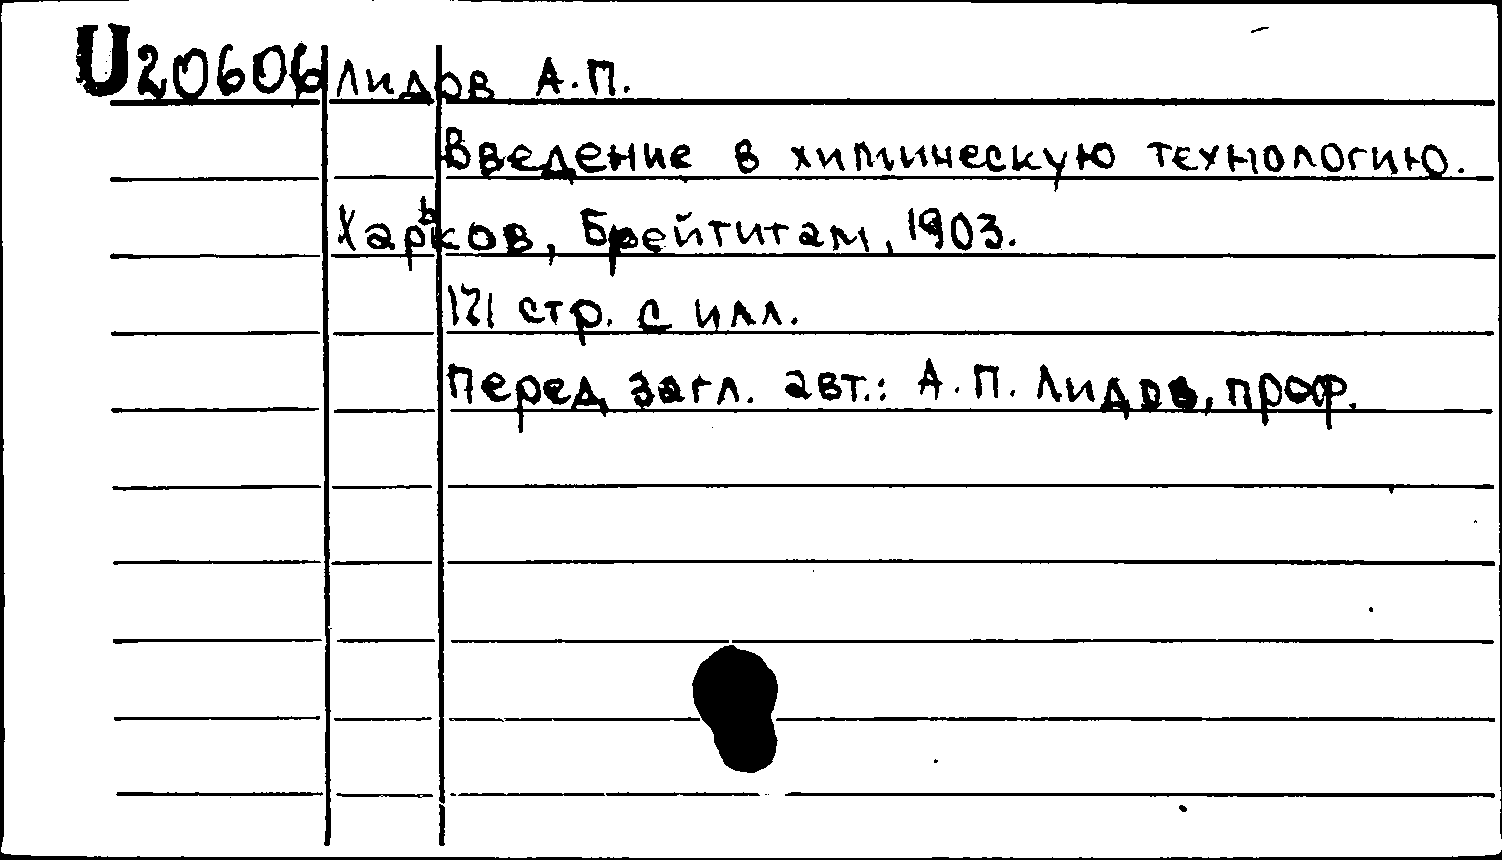 U20606 Лидов А.П.
Введение в химическую технологию.
Харьков, Брейтигам, 1903.
171 стр. с илл.
Перед загл. авт.: А.П. Лидов, проф.